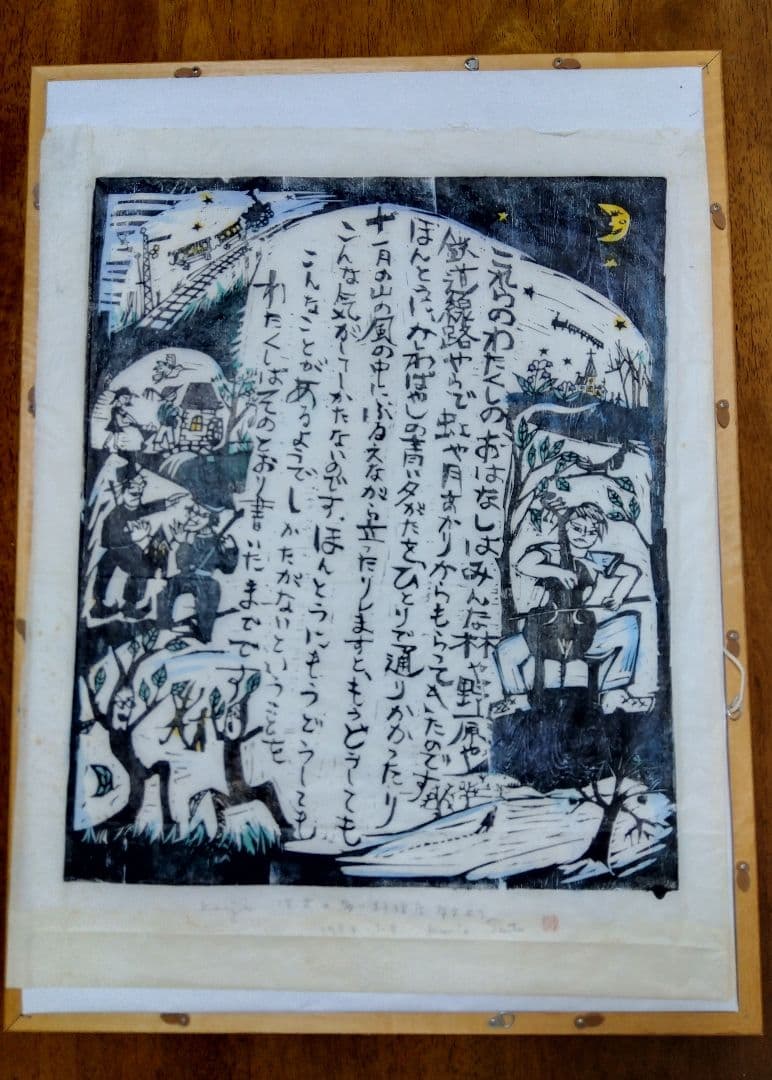 これらのわたくしのおはなしはみんな林や野原や
鉄道線路やらで虹や月あかりからもらってきたのです
ほんとうに、かしわばやしの青い夕がたを、ひとりで通りかかったり
十一月の山の風の中に、ふるえながら立ったりしますと、もうどうしても
こんな気がしてしかたないのです。ほんとうにもうどうしても
こんなことがあるようでしかたがないということを
わたくしはそのとおり書いたまでです